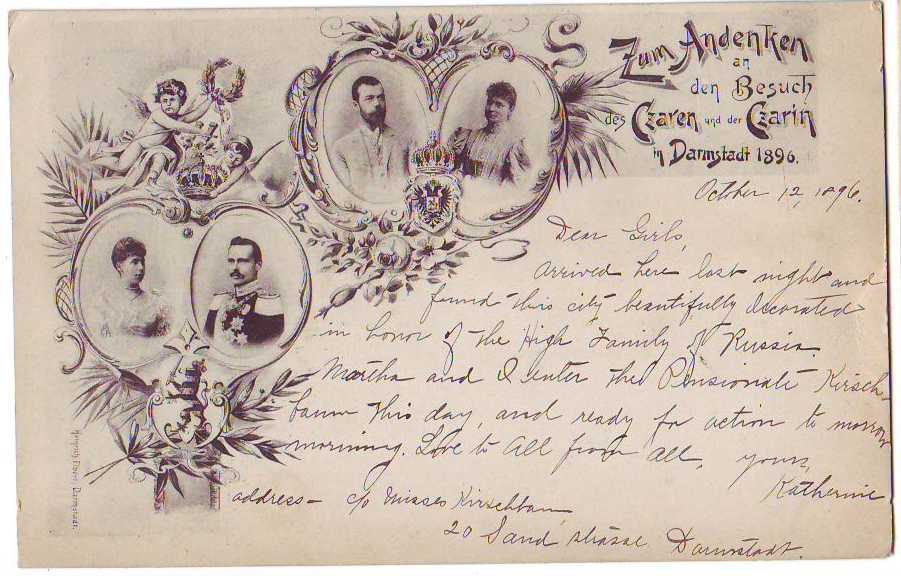 Zum Andenken
an
den Besuch
des Czaren und der Czarin
in Darmstadt 1896.
October 12, 1896.
Dear Girls,
Arrived here last night and
found this city beautifully decorated
in honor of the High Family of Russia.
Martha and I enter the Pensionate Kirsch-
baum this day, and ready for action to morrow
morning. Love to all from all,
yours,
Katherine
address - c/o Misses Kirschbaum
20 Sand strasse Darmstadt.
Darmstadt.